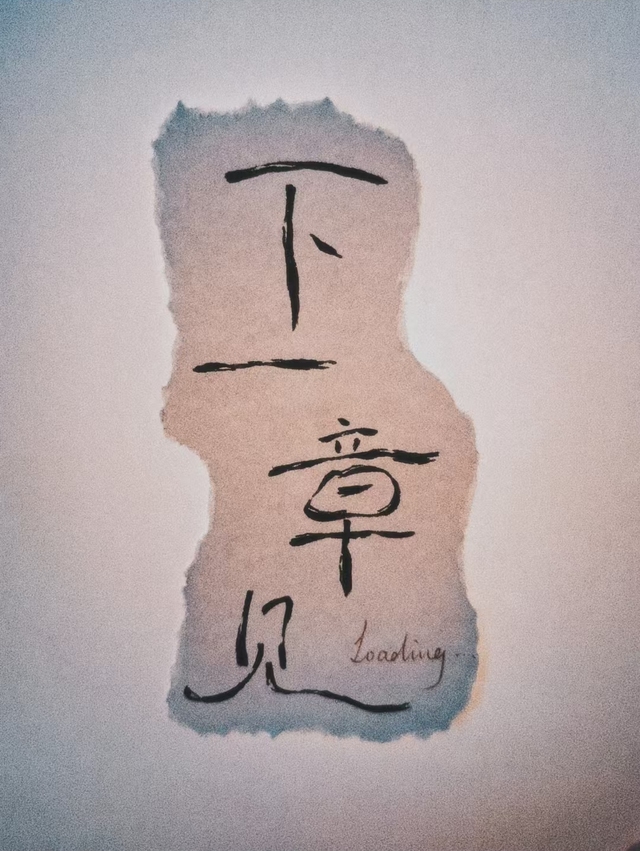 下一章见
Loading...